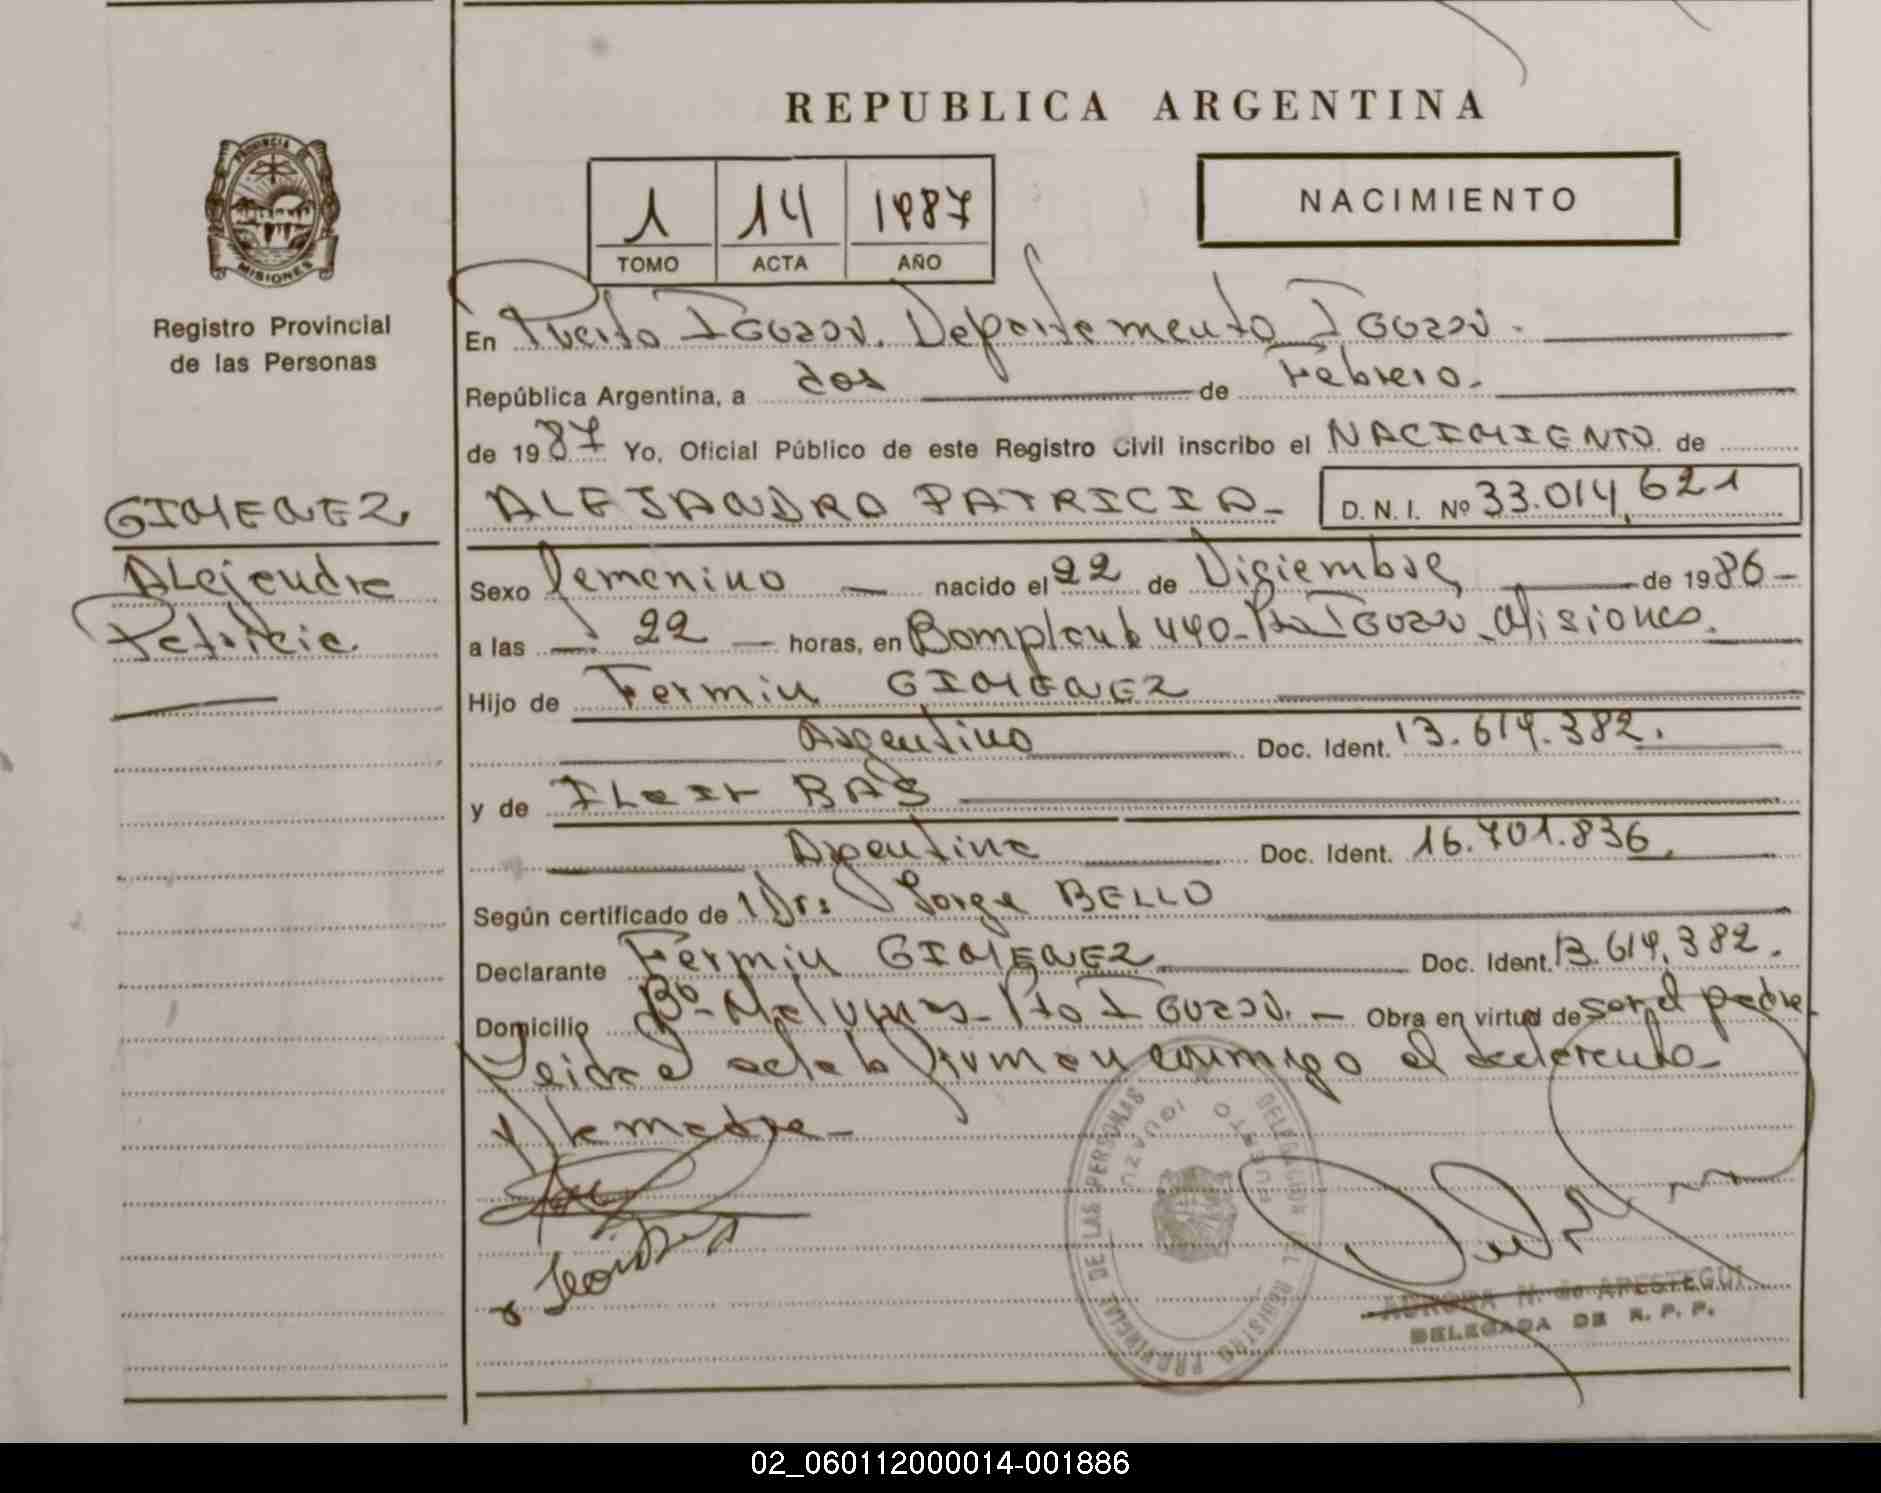 REPUBLICA ARGENTINA
PROVINCIA DE
MISIONES
Registro Provincial
de las Personas
1 14 1987
TOMO ACTA AÑO
NACIMIENTO
En Puerto Iguazú. Departamento Iguazú.
República Argentina, a dos de Febrero.
de 1987 Yo, Oficial Público de este Registro Civil inscribo el NACIMIENTO de
GIMENEZ
Alejandra
Patricia
ALEJANDRA PATRICIA- D. N. I. Nº 33.014.621
Sexo femenino — nacido el 22 de Diciembre, de 1986-
a las — 22 — horas, en Bompland 440- Pto Iguazú- Misiones.
Hijo de Fermin GIMENEZ
Argentino Doc. Ident. 13.614.382.
y de BAS
Argentina Doc. Ident. 16.701.836.
Según certificado de Dr: Jorge BELLO
Declarante Fermin GIMENEZ Doc. Ident. 13.614.382.
Domicilio Bº- Malvinas- Pto Iguazú. — Obra en virtud de ser el padre
Leida el acta la firman conmigo el declarante
y la madre-
REGISTRO PROVINCIAL DE LAS PERSONAS
DELEGACION
PUERTO IGUAZU
AURORA N. de APESTEGUI
DELEGADA DE R. P. P.
02_060112000014-001886